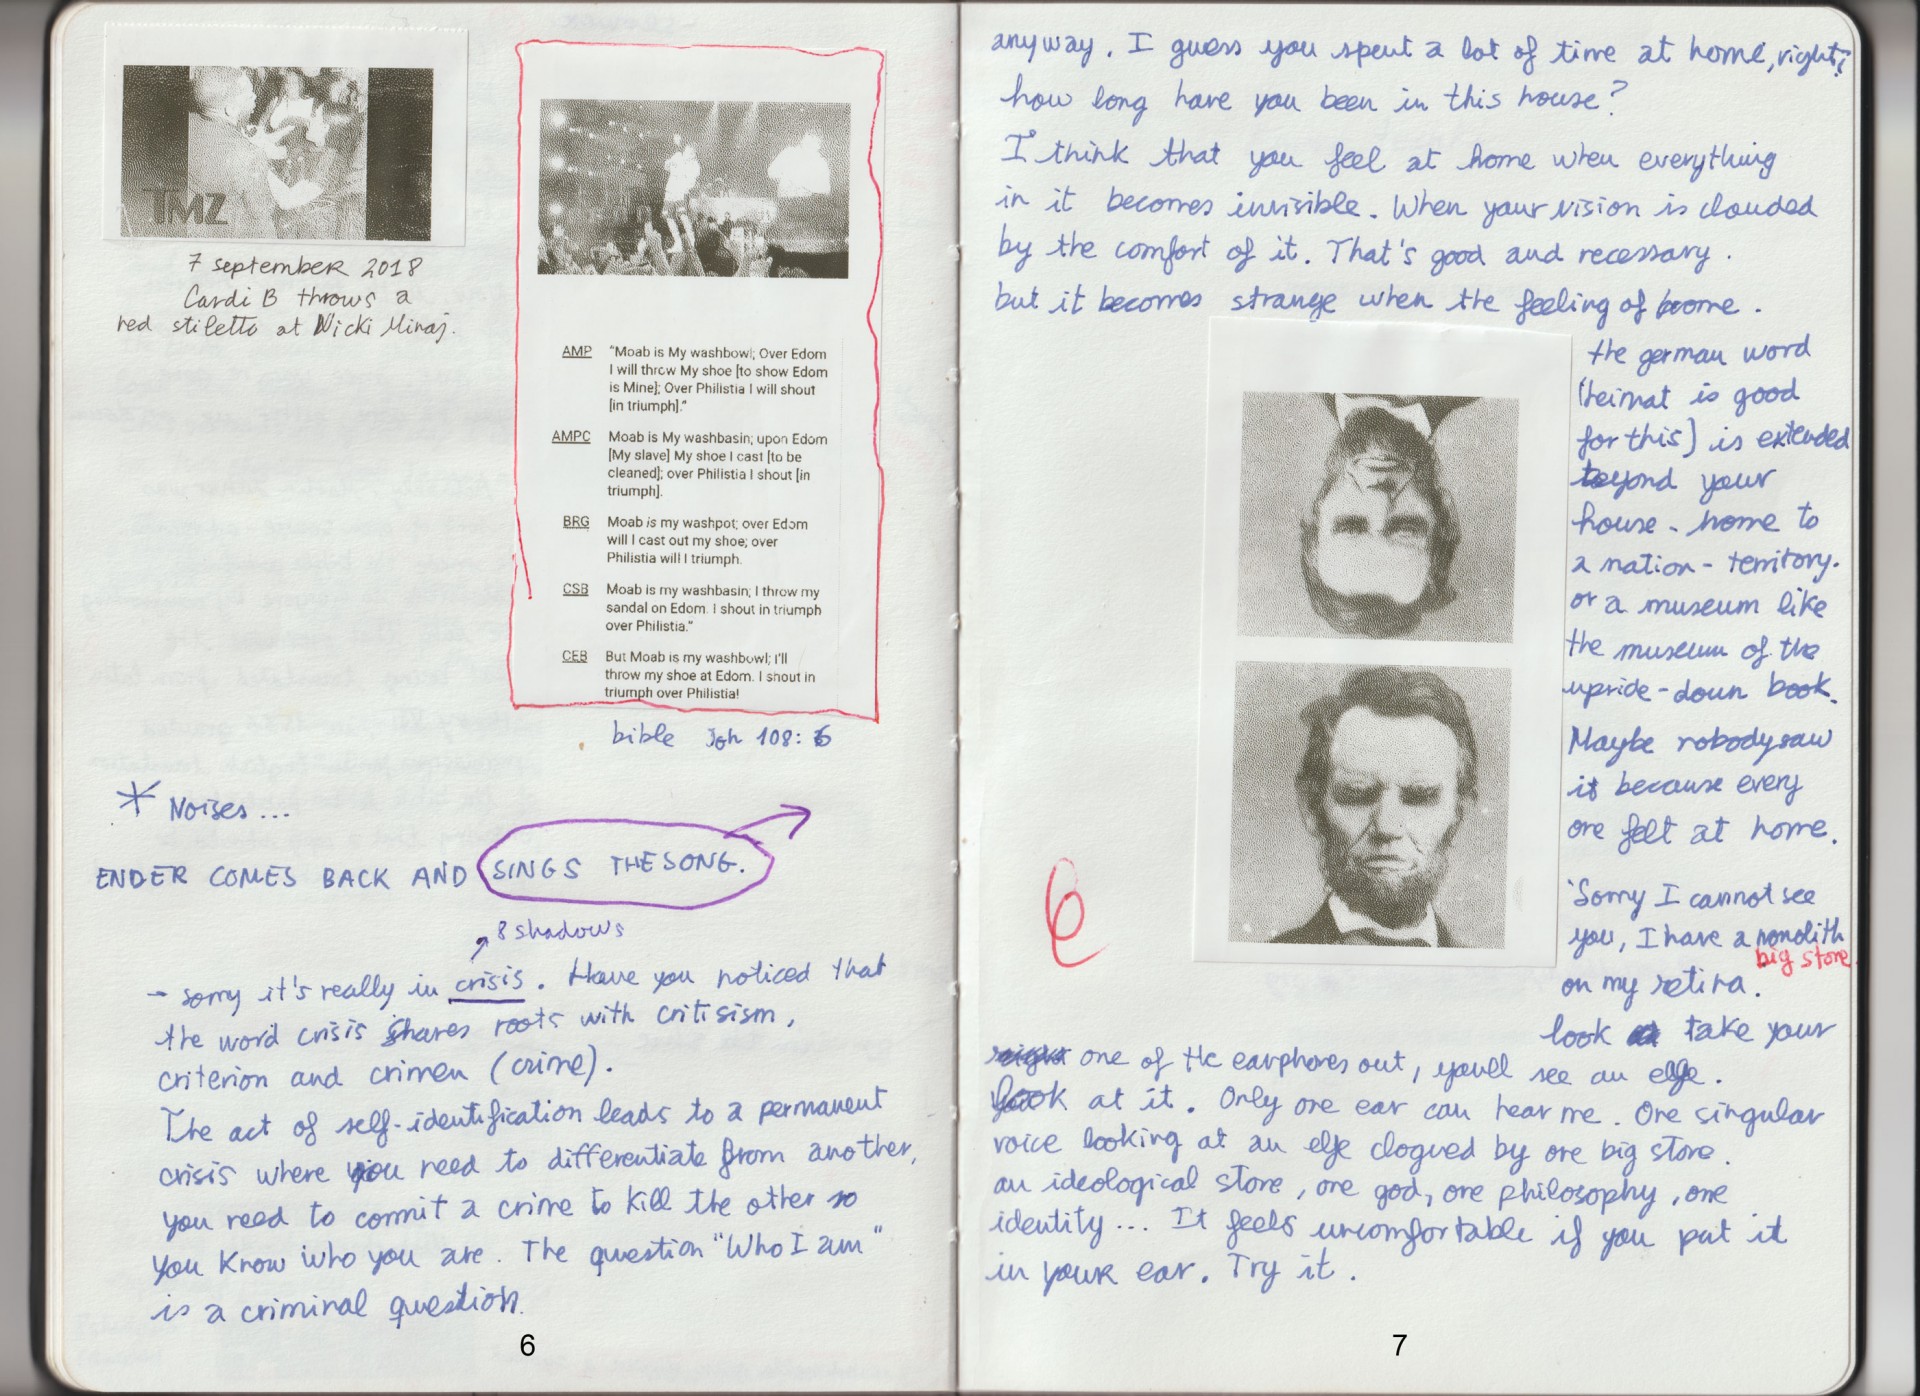 TMZ
7 september 2018
Cardi B throws a
red stiletto at Nicki Minaj.
AMP "Moab is My washbowl; Over Edom
I will throw My shoe [to show Edom
is Mine]; Over Philistia I will shout
[in triumph]."
AMPC Moab is My washbasin; upon Edom
[My slave] My shoe I cast [to be
cleaned]; over Philistia I shout [in
triumph].
BRG Moab is my washpot; over Edom
will I cast out my shoe; over
Philistia will I triumph.
CSB Moab is my washbasin; I throw my
sandal on Edom. I shout in triumph
over Philistia."
CEB But Moab is my washbowl; I'll
throw my shoe at Edom. I shout in
triumph over Philistia!
bible Joh 108: 6
* Noises...
ENDER COMES BACK AND SINGS THE SONG.
8 shadows
- sorry it's really in crisis. Have you noticed that
the word crisis shares roots with critisism,
criterion and crimen (crime).
The act of self-identification leads to a permanent
crisis where you need to differentiate from another,
you need to commit a crime to kill the other so
you know who you are. The question "Who I am"
is a criminal question.
6
anyway. I guess you spent a lot of time at home, right?
how long have you been in this house?
I think that you feel at home when everything
in it becomes invisible. When your vision is clouded
by the comfort of it. That's good and necessary.
but it becomes strange when the feeling of home.
the german word
(heimat is good
for this) is extended
beyond your
house - home to
a nation - territory.
or a museum like
the museum of the
upside-down book.
Maybe nobody saw
it because every
one felt at home.
'Sorry I cannot see
you, I have a monolith
big stone
on my retina.
look take your
one of the earphones out, you'll see an egg.
look at it. Only one ear can hear me. One singular
voice looking at an egg clogued by one big stone.
an ideological stone, one god, one philosophy, one
identity... It feels uncomfortable if you put it
in your ear. Try it.
7